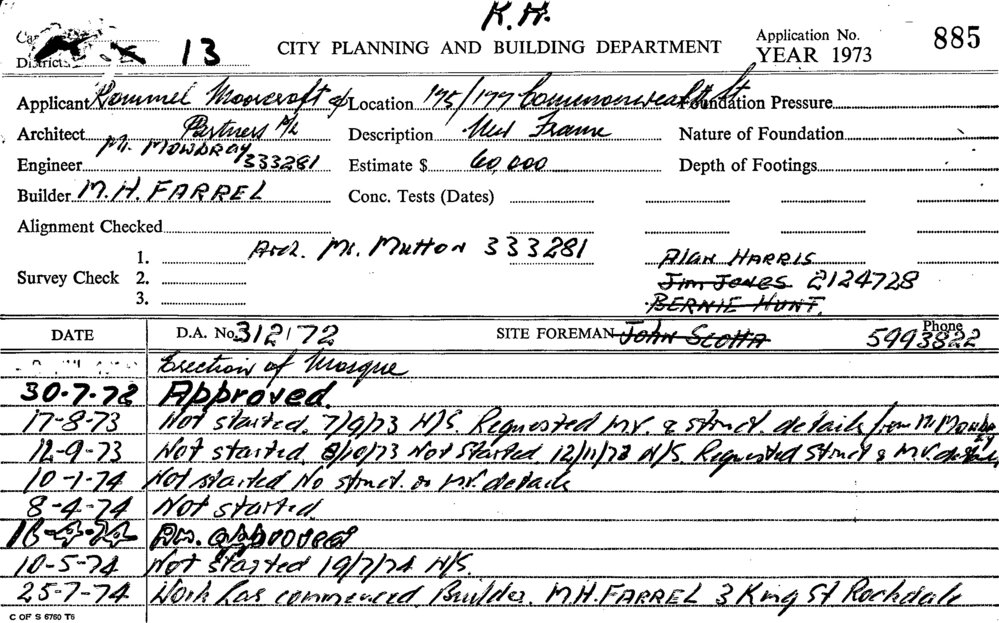 K.H.
13
CITY PLANNING AND BUILDING DEPARTMENT
Application No.
YEAR 1973
885
Districts
Applicant Rommel Moorcroft & Location 175/177 Commonwealth St Foundation Pressure
Architect Partners P/L Description New Frame Nature of Foundation
M. MOWBRAY
Engineer 333281 Estimate $ 60,000 Depth of Footings
Builder M.H. FARREL Conc. Tests (Dates)
Alignment Checked
1. Arch. Mr. Mutton 333281 Alan HARRIS
Survey Check 2. Jim Jones 2124728
3. BERNIE HUNT.
DATE D.A. No. 312/72 SITE FOREMAN John Scotta Phone 5993822
Erection of Mosque
30.7.73 Approved.
17-8-73 Not started. 7/9/73 N/S. Requested M.V. & struct. details from M Mowbray
12-9-73 Not started. 8/10/73 Not Started 12/11/73 N/S. Requested Struct & M.V. details
10-1-74 Not started No struct. or M.V. details
8-4-74 Not started
Am. approved
10-5-74 Not started 19/7/74 N/S.
25-7-74 Work has commenced. Builder. M.H. FARREL 3 King St Rockdale
C OF S 6760 T6